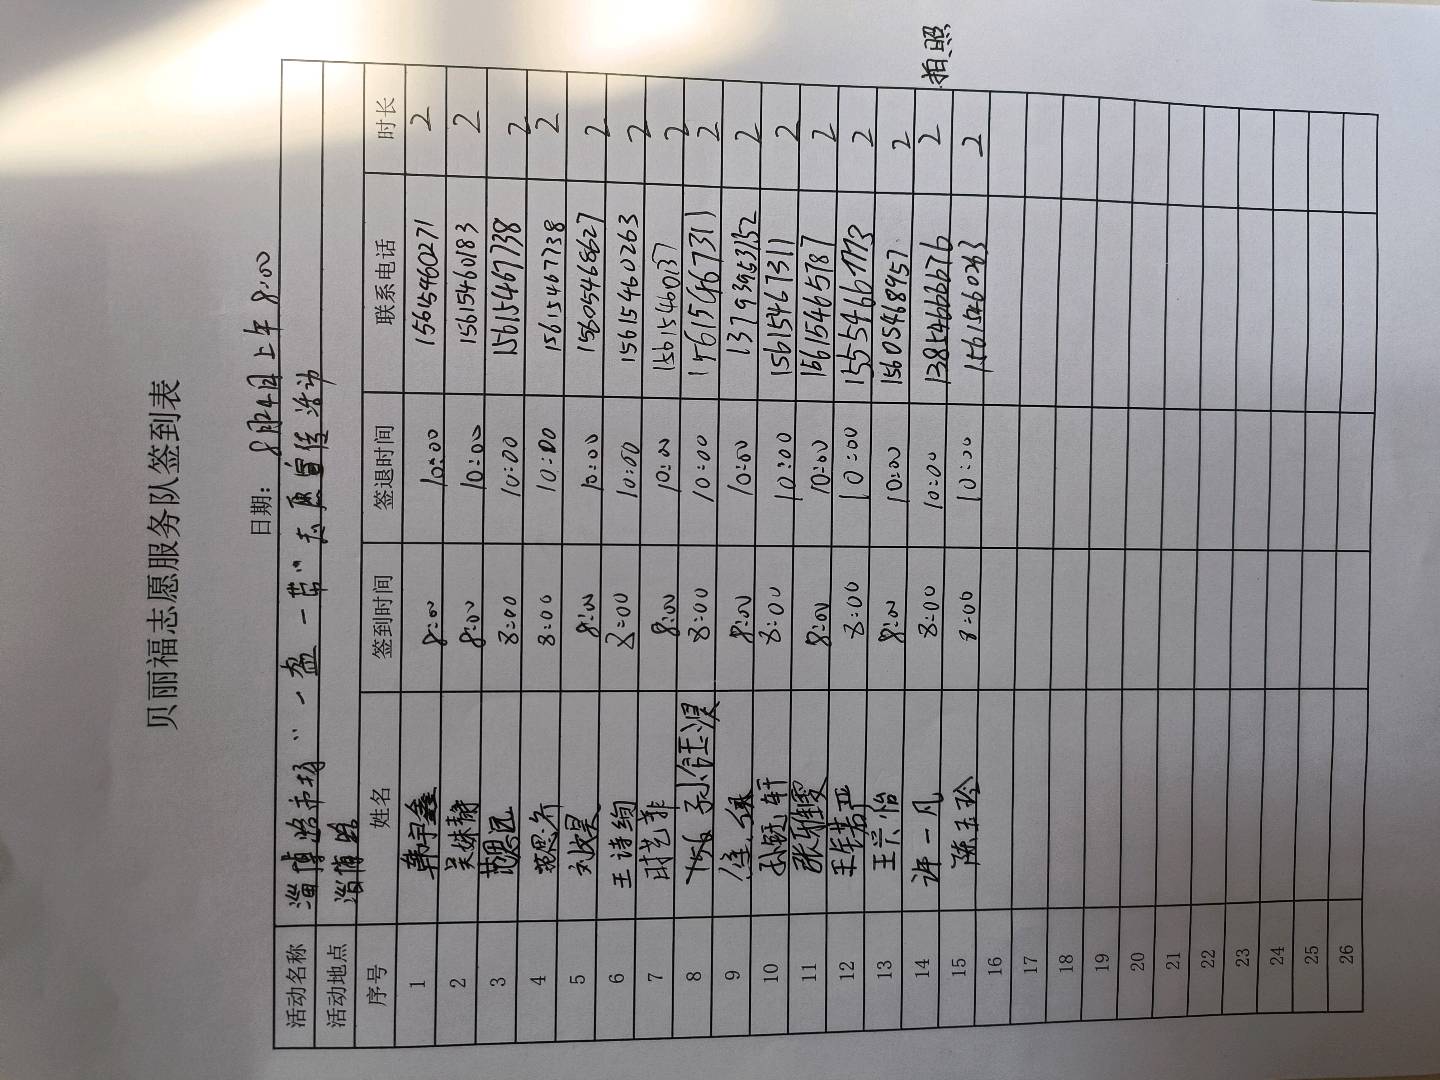 贝丽福志愿服务队签到表
日期： 8月4日上午8:00
活动名称 淄博路市场“一盔一带”志愿宣传活动
活动地点 淄博路
序号 姓名 签到时间 签退时间 联系电话 时长
1 韩宇鑫 8:00 10:00 15615460271 2
2 吴姝静 8:00 10:00 15615460183 2
3 范思远 8:00 10:00 15615467738 2
4 范思齐 8:00 10:00 15615467738 2
5 8:00 10:00 15605468627 2
6 王诗绚 8:00 10:00 15615460263 2
7 时艺菲 8:00 10:00 15615460137 2
8 8:00 10:00 15615467311 2
9 8:00 10:00 13793953152 2
10 8:00 10:00 15615467311 2
11 张雅雯 8:00 10:00 15615465787 2
12 8:00 10:00 2
13 王兴怡 8:00 10:00 15605468957 2
14 许一凡 8:00 10:00 13854666676 2 拍照
15 陈玉玲 8:00 10:00 15615460263 2
16
17
18
19
20
21
22
23
24
25
26